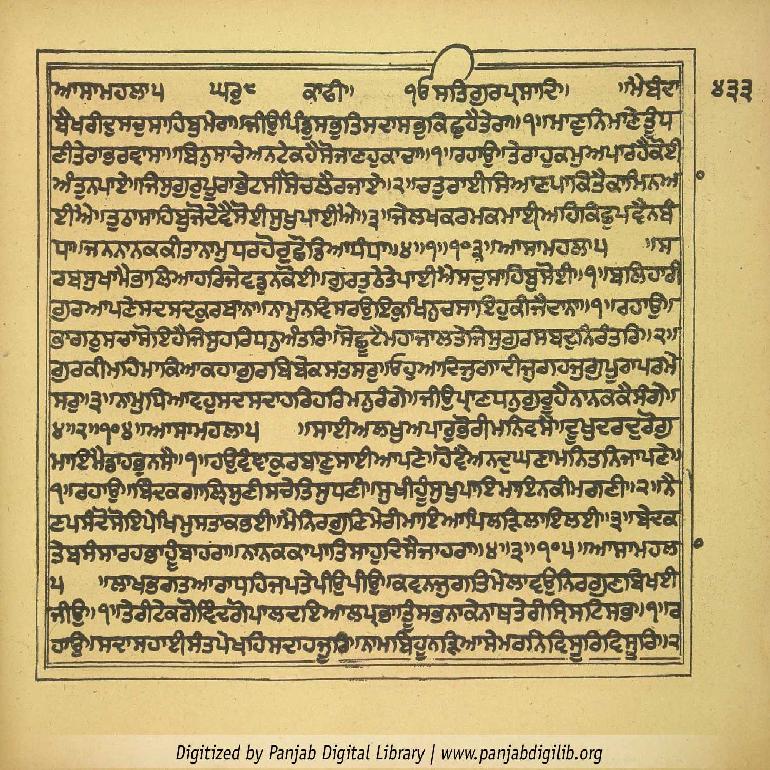 ਆਸਾਮਹਲਾ੫ ਘਰੁ੮ ਕਾਫੀ॥ ੴਸਤਿਗੁਰਪ੍ਰਸਾਦਿ॥ ॥ਮੈਬੰਦਾ ੪੩੩
ਬੈਖਰੀਦੁਸਚੁਸਾਹਿਬੁਮੇਰਾ॥ਜੀਉਪਿੰਡੁਸਭੁਤਿਸਦਾਸਭੁਕਿਛੁਹੈਤੇਰਾ॥੧॥ਮਾਣੁਨਿਮਾਣੇਤੂੰਧ
ਣੀਤੇਰਾਭਰਵਾਸਾ॥ਬਿਨੁਸਾਚੇਅਨਟੇਕਹੈਸੋਜਾਣਹੁਕਾਚਾ॥੧॥ਰਹਾਉ॥ਤੇਰਾਹੁਕਮੁਅਪਾਰਹੈਕੋਈ
ਅੰਤੁਨਪਾਏ॥ਜਿਸੁਗੁਰੁਪੂਰਾਭੇਟਸੀਸੋਚਲੈਰਜਾਏ॥੨॥ਚਤੁਰਾਈਸਿਆਣਪਾਕਿਤੈਕਾਮਿਨਆ
ਈਐ॥ਤੁਠਾਸਾਹਿਬੁਜੋਦੇਵੈਸੋਈਸੁਖੁਪਾਈਐ॥੩॥ਜੇਲਖਕਰਮਕਮਾਈਅਹਿਕਿਛੁਪਵੈਨਬੰ
ਧਾ॥ਜਨਨਾਨਕਕੀਤਾਨਾਮੁਧਰਹੋਰੁਛੋਡਿਆਧੰਧਾ॥੪॥੧॥੧੦੩॥ਆਸਾਮਹਲਾ੫ ॥ਸ
ਰਬਸੁਖਾਮੈਭਾਲਿਆਹਰਿਜੇਵਡੁਨਕੋਈ॥ਗੁਰਤੁਠੇਤੇਪਾਈਐਸਚੁਸਾਹਿਬੁਸੋਈ॥੧॥ਬਲਿਹਾਰੀ
ਗੁਰਆਪਣੇਸਦਸਦਕੁਰਬਾਨਾ॥ਨਾਮੁਨਵਿਸਰਉਇਕੁਖਿਨੁਚਸਾਇਹੁਕੀਜੈਦਾਨਾ॥੧॥ਰਹਾਉ॥
ਭਾਗਠੁਸਚਾਸੋਇਹੈਜਿਸੁਹਰਿਧਨੁਅੰਤਰਿ॥ਸੋਛੂਟੈਮਹਾਜਾਲਤੇਜਿਸੁਗੁਰਸਬਦੁਨਿਰੰਤਰਿ॥੨॥
ਗੁਰਕੀਮਹਿਮਾਕਿਆਕਹਾਗੁਰੁਬਿਬੇਕਸਤਸਰੁ॥ਓਹੁਆਦਿਜੁਗਾਦੀਜੁਗਹਜੁਗੁਪੂਰਾਪਰਮੇ
ਸਰੁ॥੩॥ਨਾਮੁਧਿਆਵਹੁਸਦਸਦਾਹਰਿਹਰਿਮਨੁਰੰਗੇ॥ਜੀਉਪ੍ਰਾਣਧਨੁਗੁਰੂਹੈਨਾਨਕਕੈਸੰਗੇ॥
੪॥੨॥੧੦੪॥ਆਸਾਮਹਲਾ੫ ॥ਸਾਈਅਲਖੁਅਪਾਰੁਭੋਰੀਮਨਿਵਸੈ॥ਦੂਖੁਦਰਦੁਰੋਗੁ
ਮਾਇਮੈਡਾਹਭੁਨਸੈ॥੧॥ਹਉਵੰਞਾਕੁਰਬਾਣੁਸਾਈਆਪਣੇ॥ਹੋਵੈਅਨਦੁਘਣਾਮਨਿਤਨਿਜਾਪਣੇ॥
੧॥ਰਹਾਉ॥ਬਿੰਦਕਗਾਲਿਸੁਣੀਸਚੇਤਿਸੁਧਣੀ॥ਸੂਖੀਹੂੰਸੁਖੁਪਾਇਮਾਇਨਕੀਮਗਣੀ॥੨॥ਨੈ
ਣਪਸੰਦੋਸੋਇਪੇਖਿਮੁਸਤਾਕਭਈ॥ਮੈਨਿਰਗੁਣਿਮੇਰੀਮਾਇਆਪਿਲੜਿਲਾਇਲਈ॥੩॥ਬੇਦਕ
ਤੇਬਸੰਸਾਰਹਭਾਹੂੰਬਾਹਰਾ॥ਨਾਨਕਕਾਪਾਤਿਸਾਹੁਦਿਸੈਜਾਹਰਾ॥੪॥੩॥੧੦੫॥ਆਸਾਮਹਲ
੫ ॥ਲਾਖਭਗਤਆਰਾਧਹਿਜਪਤੇਪੀਉਪੀਉ॥ਕਵਨਜੁਗਤਿਮੇਲਾਵਉਨਿਰਗੁਣਬਿਖਈ
ਜੀਉ॥੧॥ਤੇਰੀਟੇਕਗੋਵਿੰਦਗੋਪਾਲਦਇਆਲਪ੍ਰਭ॥ਤੂੰਸਭਨਾਕੇਨਾਥਤੇਰੀਸ੍ਰਿਸਟਿਸਭ॥੧॥ਰ
ਹਾਉ॥ਸਦਾਸਹਾਈਸੰਤਪੇਖਹਿਸਦਾਹਜੂਰਿ॥ਨਾਮਬਿਹੂਨੜਿਆਸੇਮਰਨਿਵਿਸੂਰਿਵਿਸੂਰਿ॥੨
Digitized by Panjab Digital Library | www.panjabdigilib.org